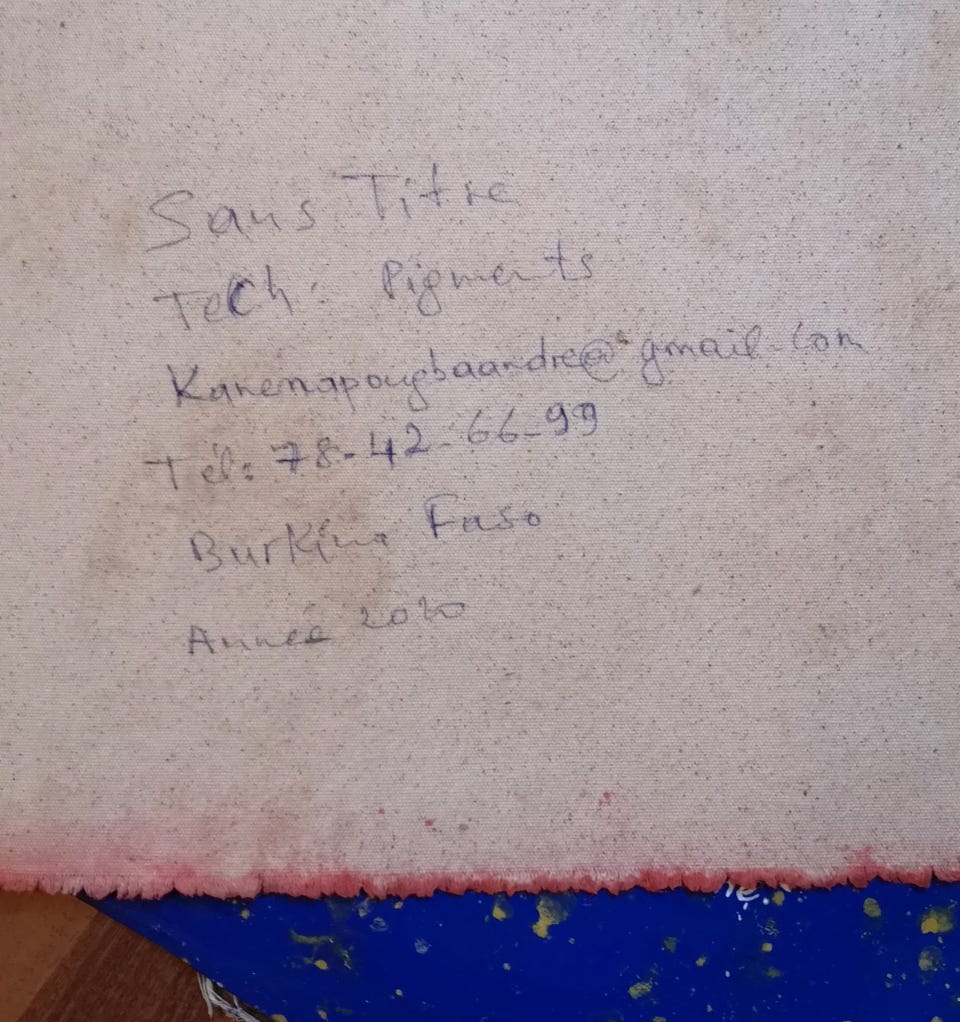 Sans Titre
Tech: Pigments
Kanemapougbaandre@gmail.com
Tél: 78-42-66-99
Burkina Faso
Année 2020